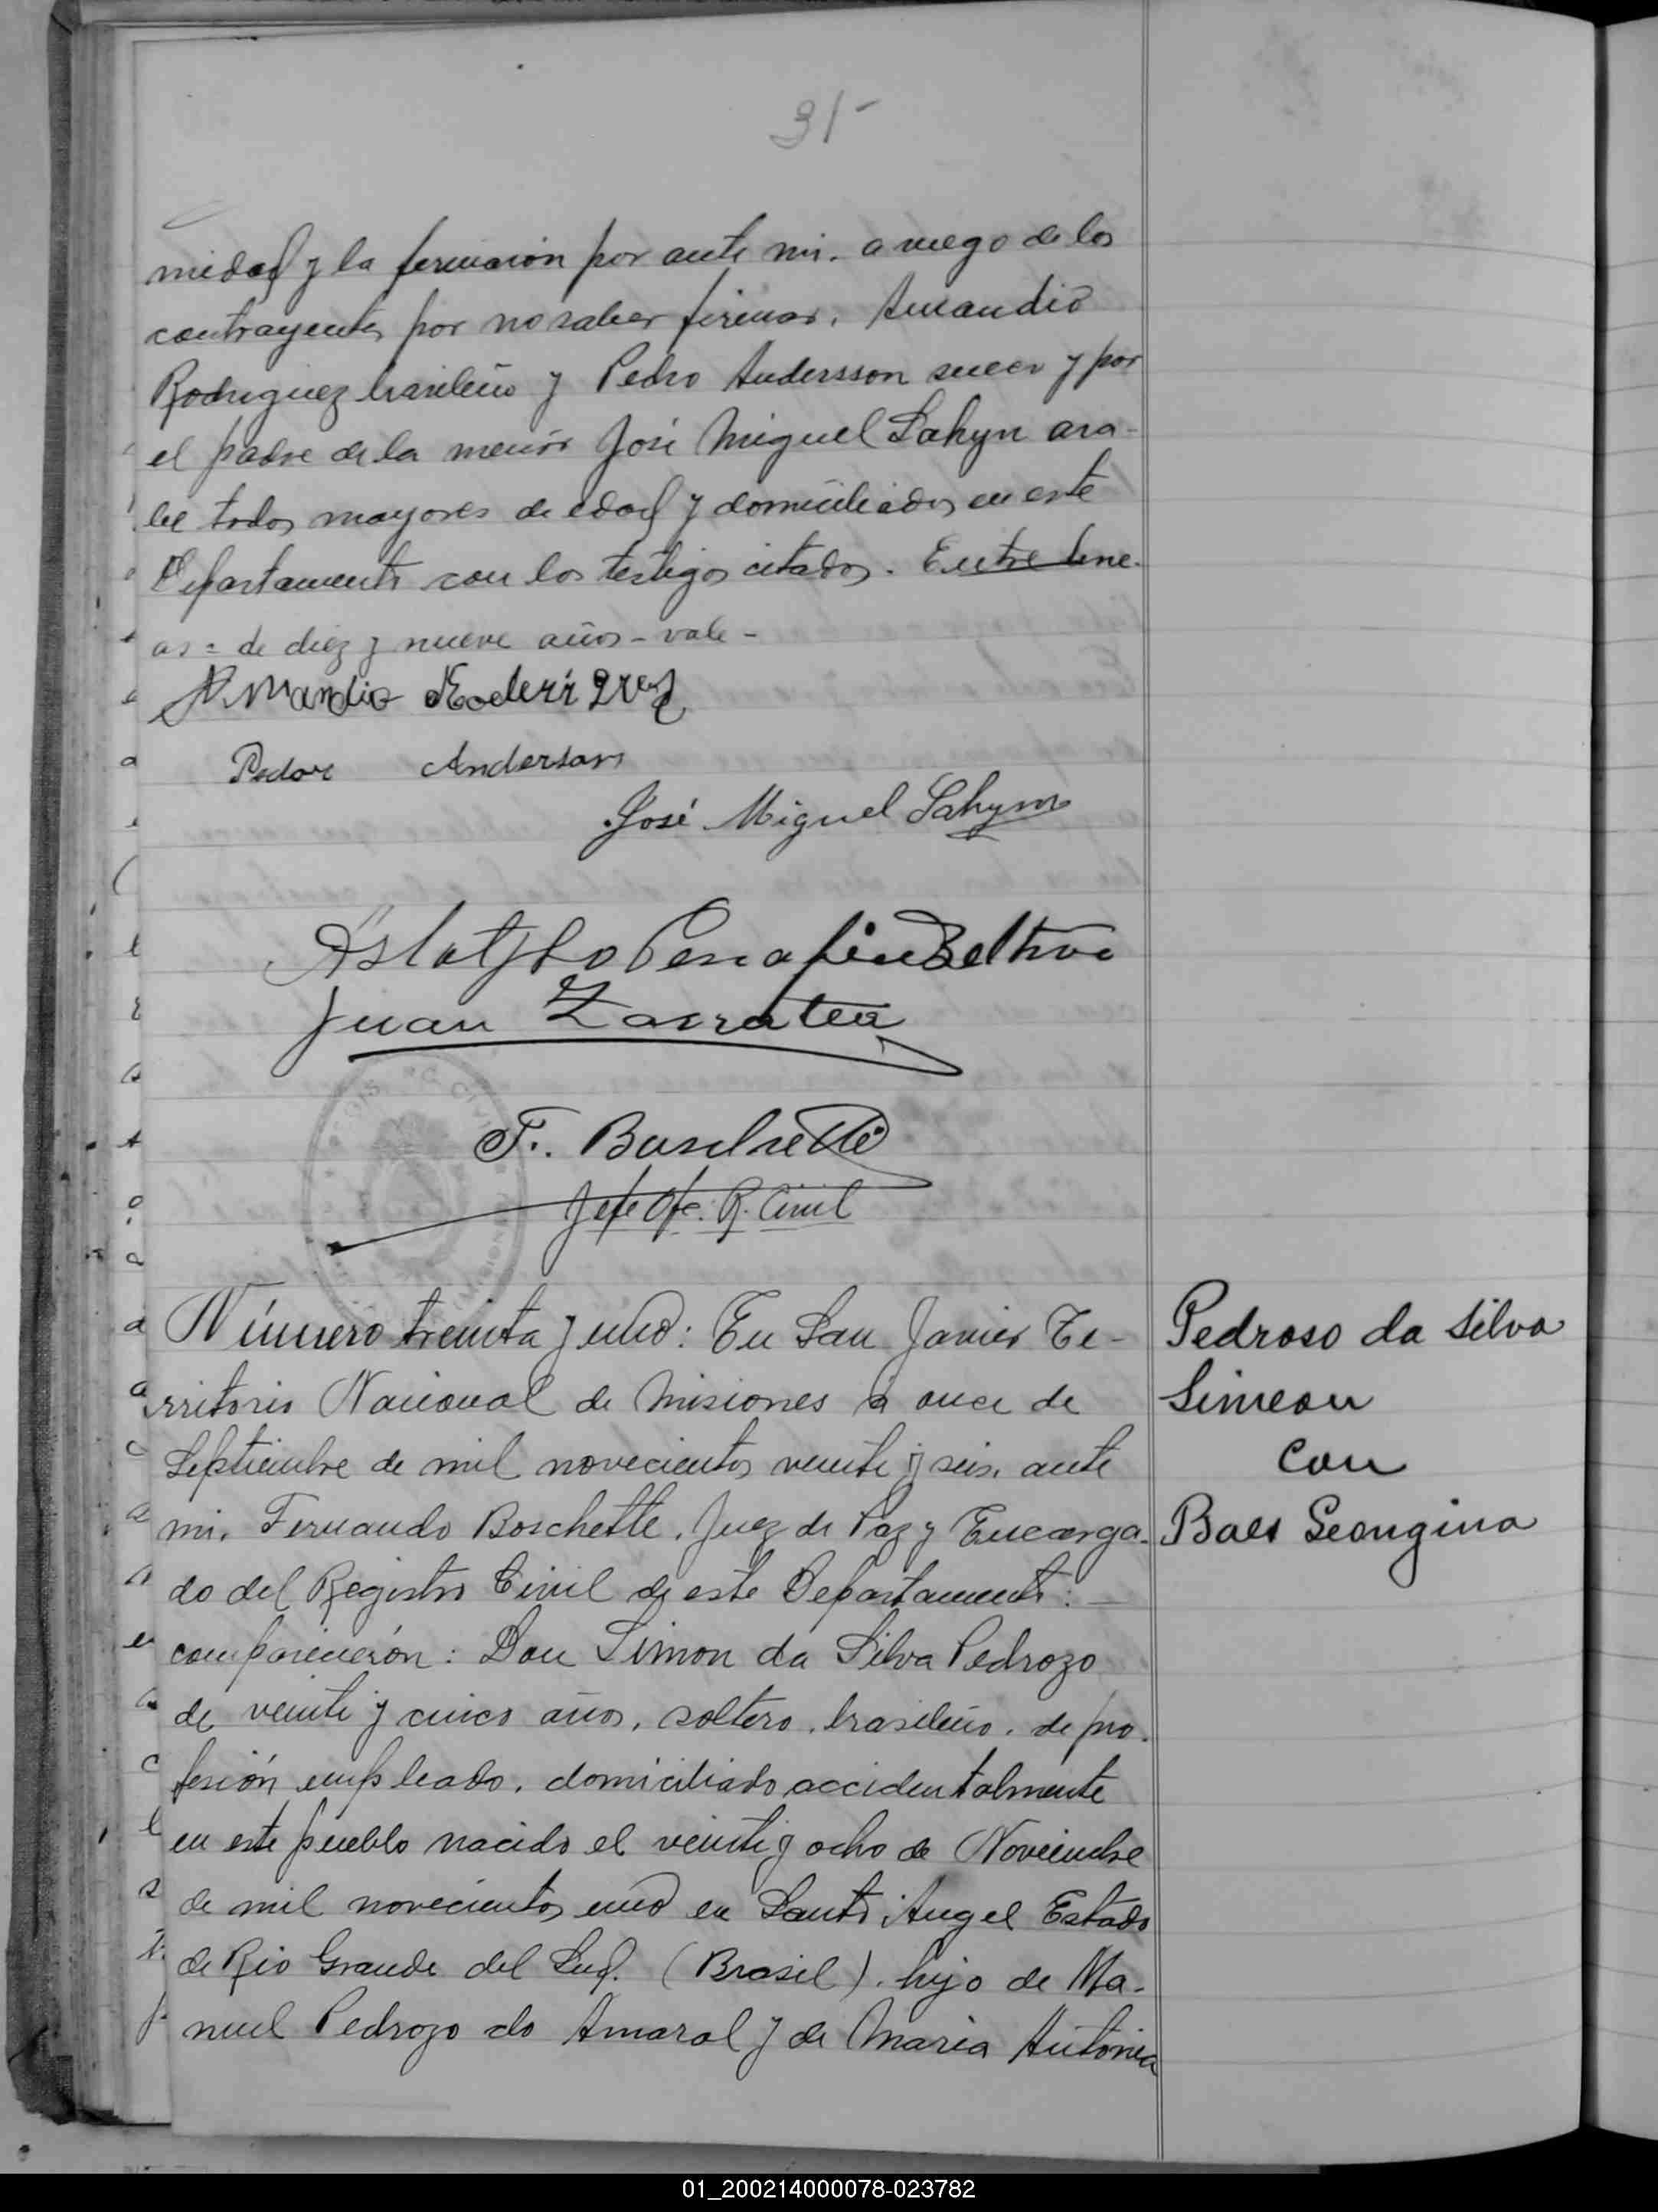 31-
midad y la firmaron por ante mi. a ruego de los
contrayentes por no saber firmar. Amandio
Rodriguez brasileño y Pedro Andersson sueco y por
el padre de la menor José Miguel Sahyn ara-
be todos mayores de edad y domiciliados en este
Departamento con los testigos citados. Entre line-
as = de diez y nueve años - vale -
Amandio Roderiguez
Pedor Anderson
José Miguel Sahym
Juan Zarratea
F. Boschetti
Jefe Ofc. R. Civil
Número treinta y uno: En San Javier Te-
rritorio Nacional de Misiones a once de
Septiembre de mil novecientos veinte y seis, ante
mi. Fernando Boschette. Juez de Paz y Encarga-
do del Registro Civil de este Departamento:
comparecieron: Don Simon da Silva Pedrozo
de veinte y cinco años, soltero, brasileño, de pro-
fesión empleado, domiciliado accidentalmente
en este pueblo nacido el veinte y ocho de Noviembre
de mil novecientos uno en Santo Angel Estado
de Rio Grande del Sud. (Brasil). hijo de Ma-
nuel Pedrozo do Amaral y de Maria Antonia
Pedroso da Silva
Simeon
con
Baes Georgina
01_200214000078-023782